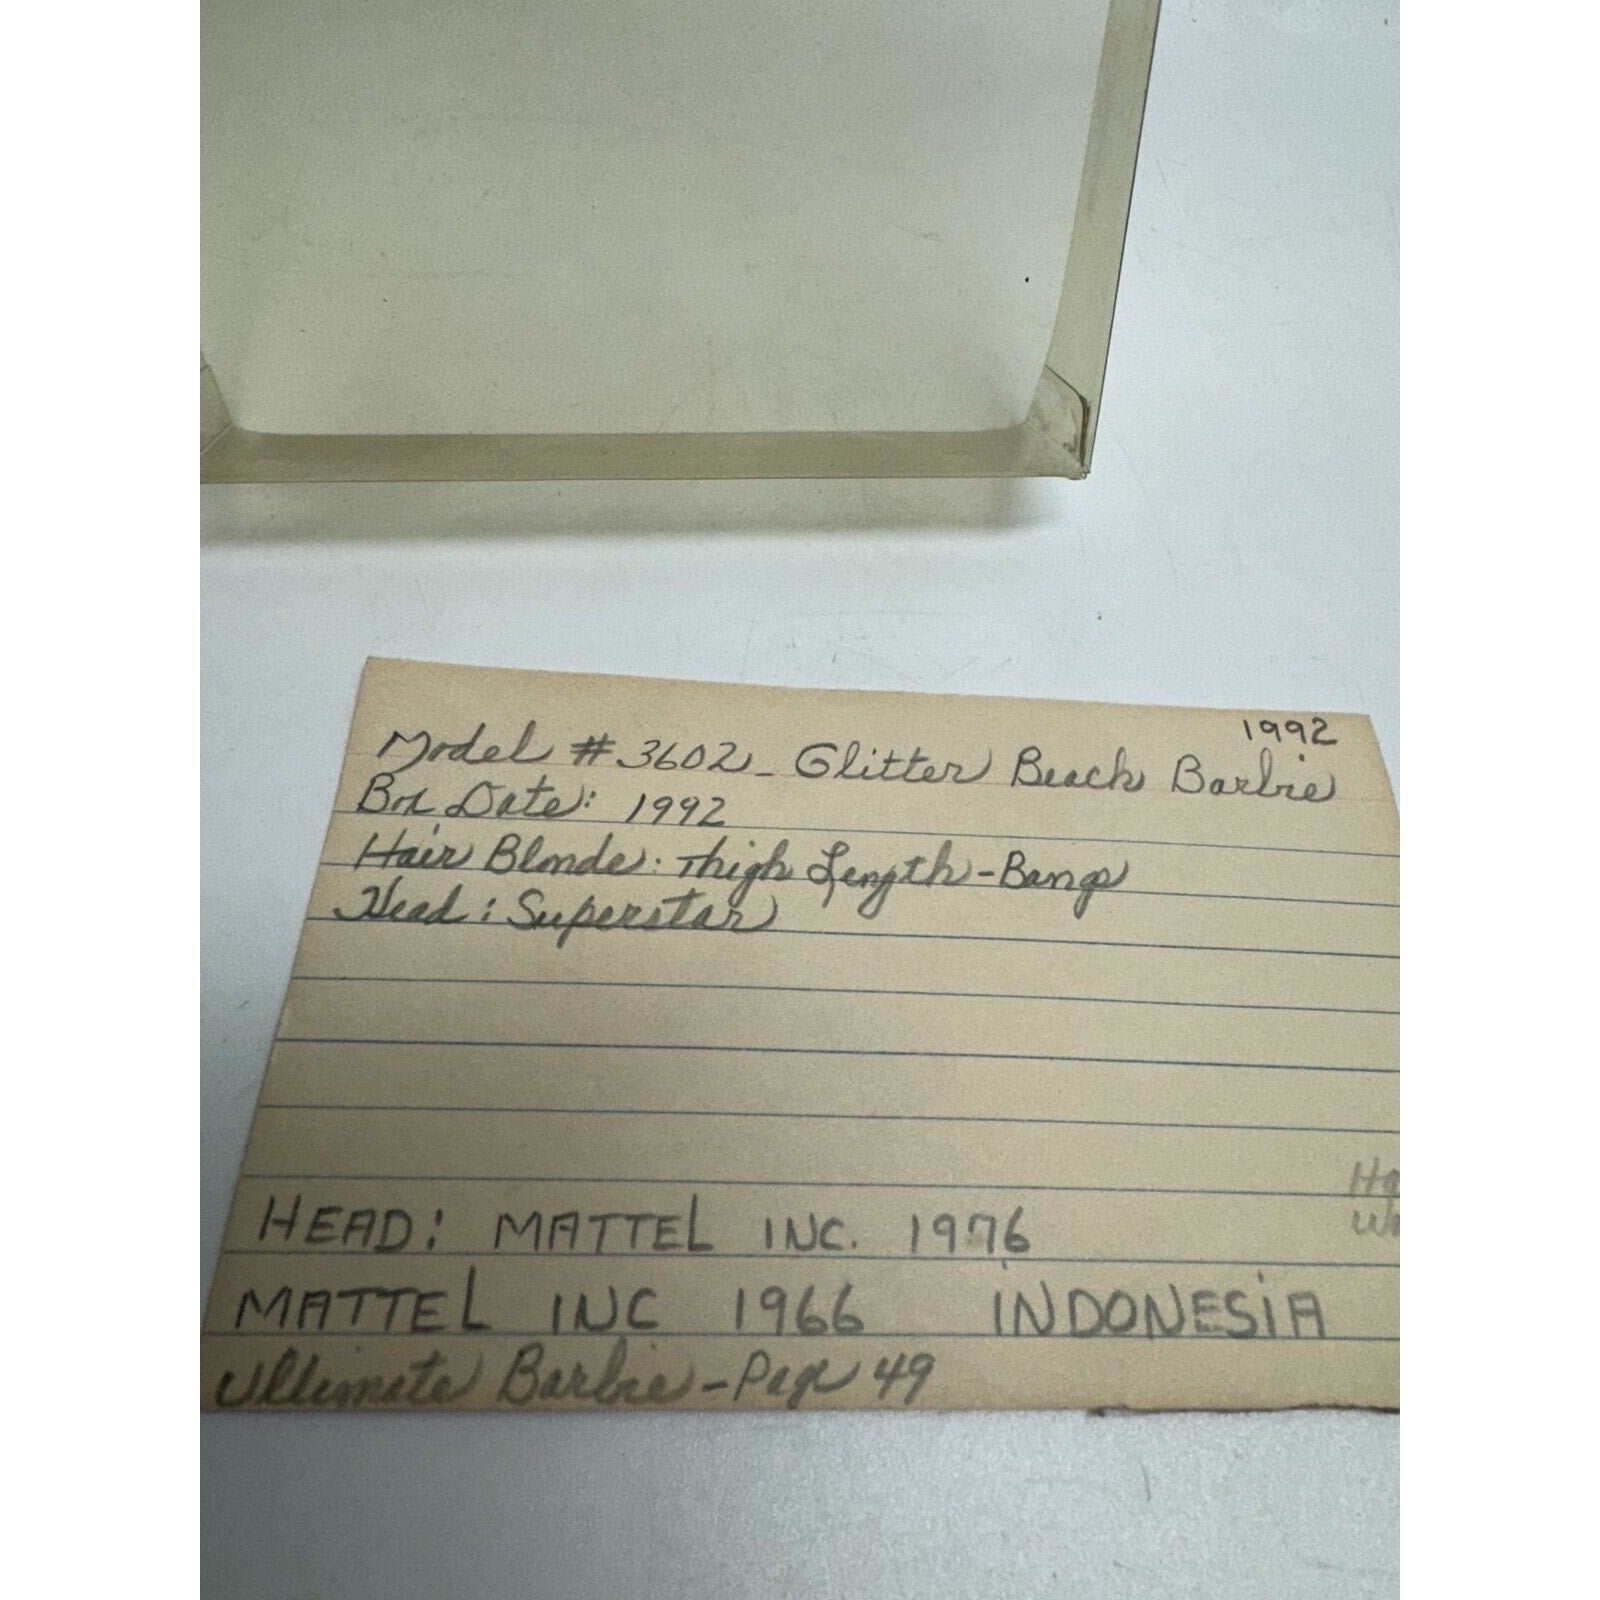 1992
Model # 3602 - Glitter Beach Barbie
Box Date: 1992
Hair Blonde: Thigh Length - Bangs
Head: Superstar
HEAD: MATTEL INC. 1976
MATTEL INC 1966 INDONESIA
Ultimate Barbie - Page 49